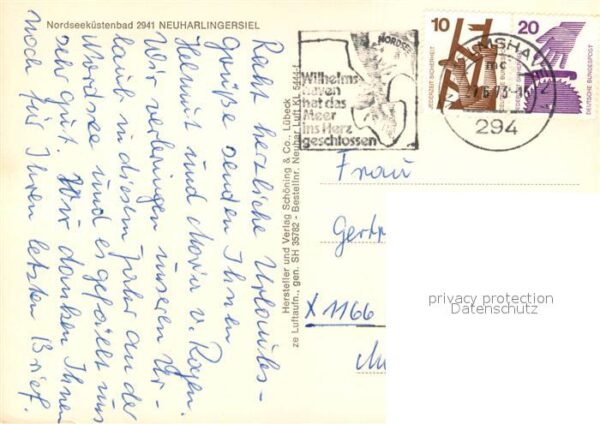 Nordseeküstenbad 2941 NEUHARLINGERSIEL
Recht herzliche Urlaubs-
grüße senden Ihnen
Helmut und Maria v. Rozen.
Wir verbringen unseren Ur-
laub in diesem Jahr an der
Nordsee und es gefällt uns
sehr gut. Wir danken Ihnen
noch für Ihren letzten Brief.
Hersteller und Verlag Schöning & Co., Lübeck
ze Luftaufn., gen. SH 35782 - Bestellnr. Neuhar Luft KL
NORDSEE
Wilhelms-
haven
hat das
Meer
ins Herz
geschlossen
10
JEDERZEIT SICHERHEIT
20
DEUTSCHE BUNDESPOST
mc
294
Frau
Gert
X 1166
privacy protection
Datenschutz